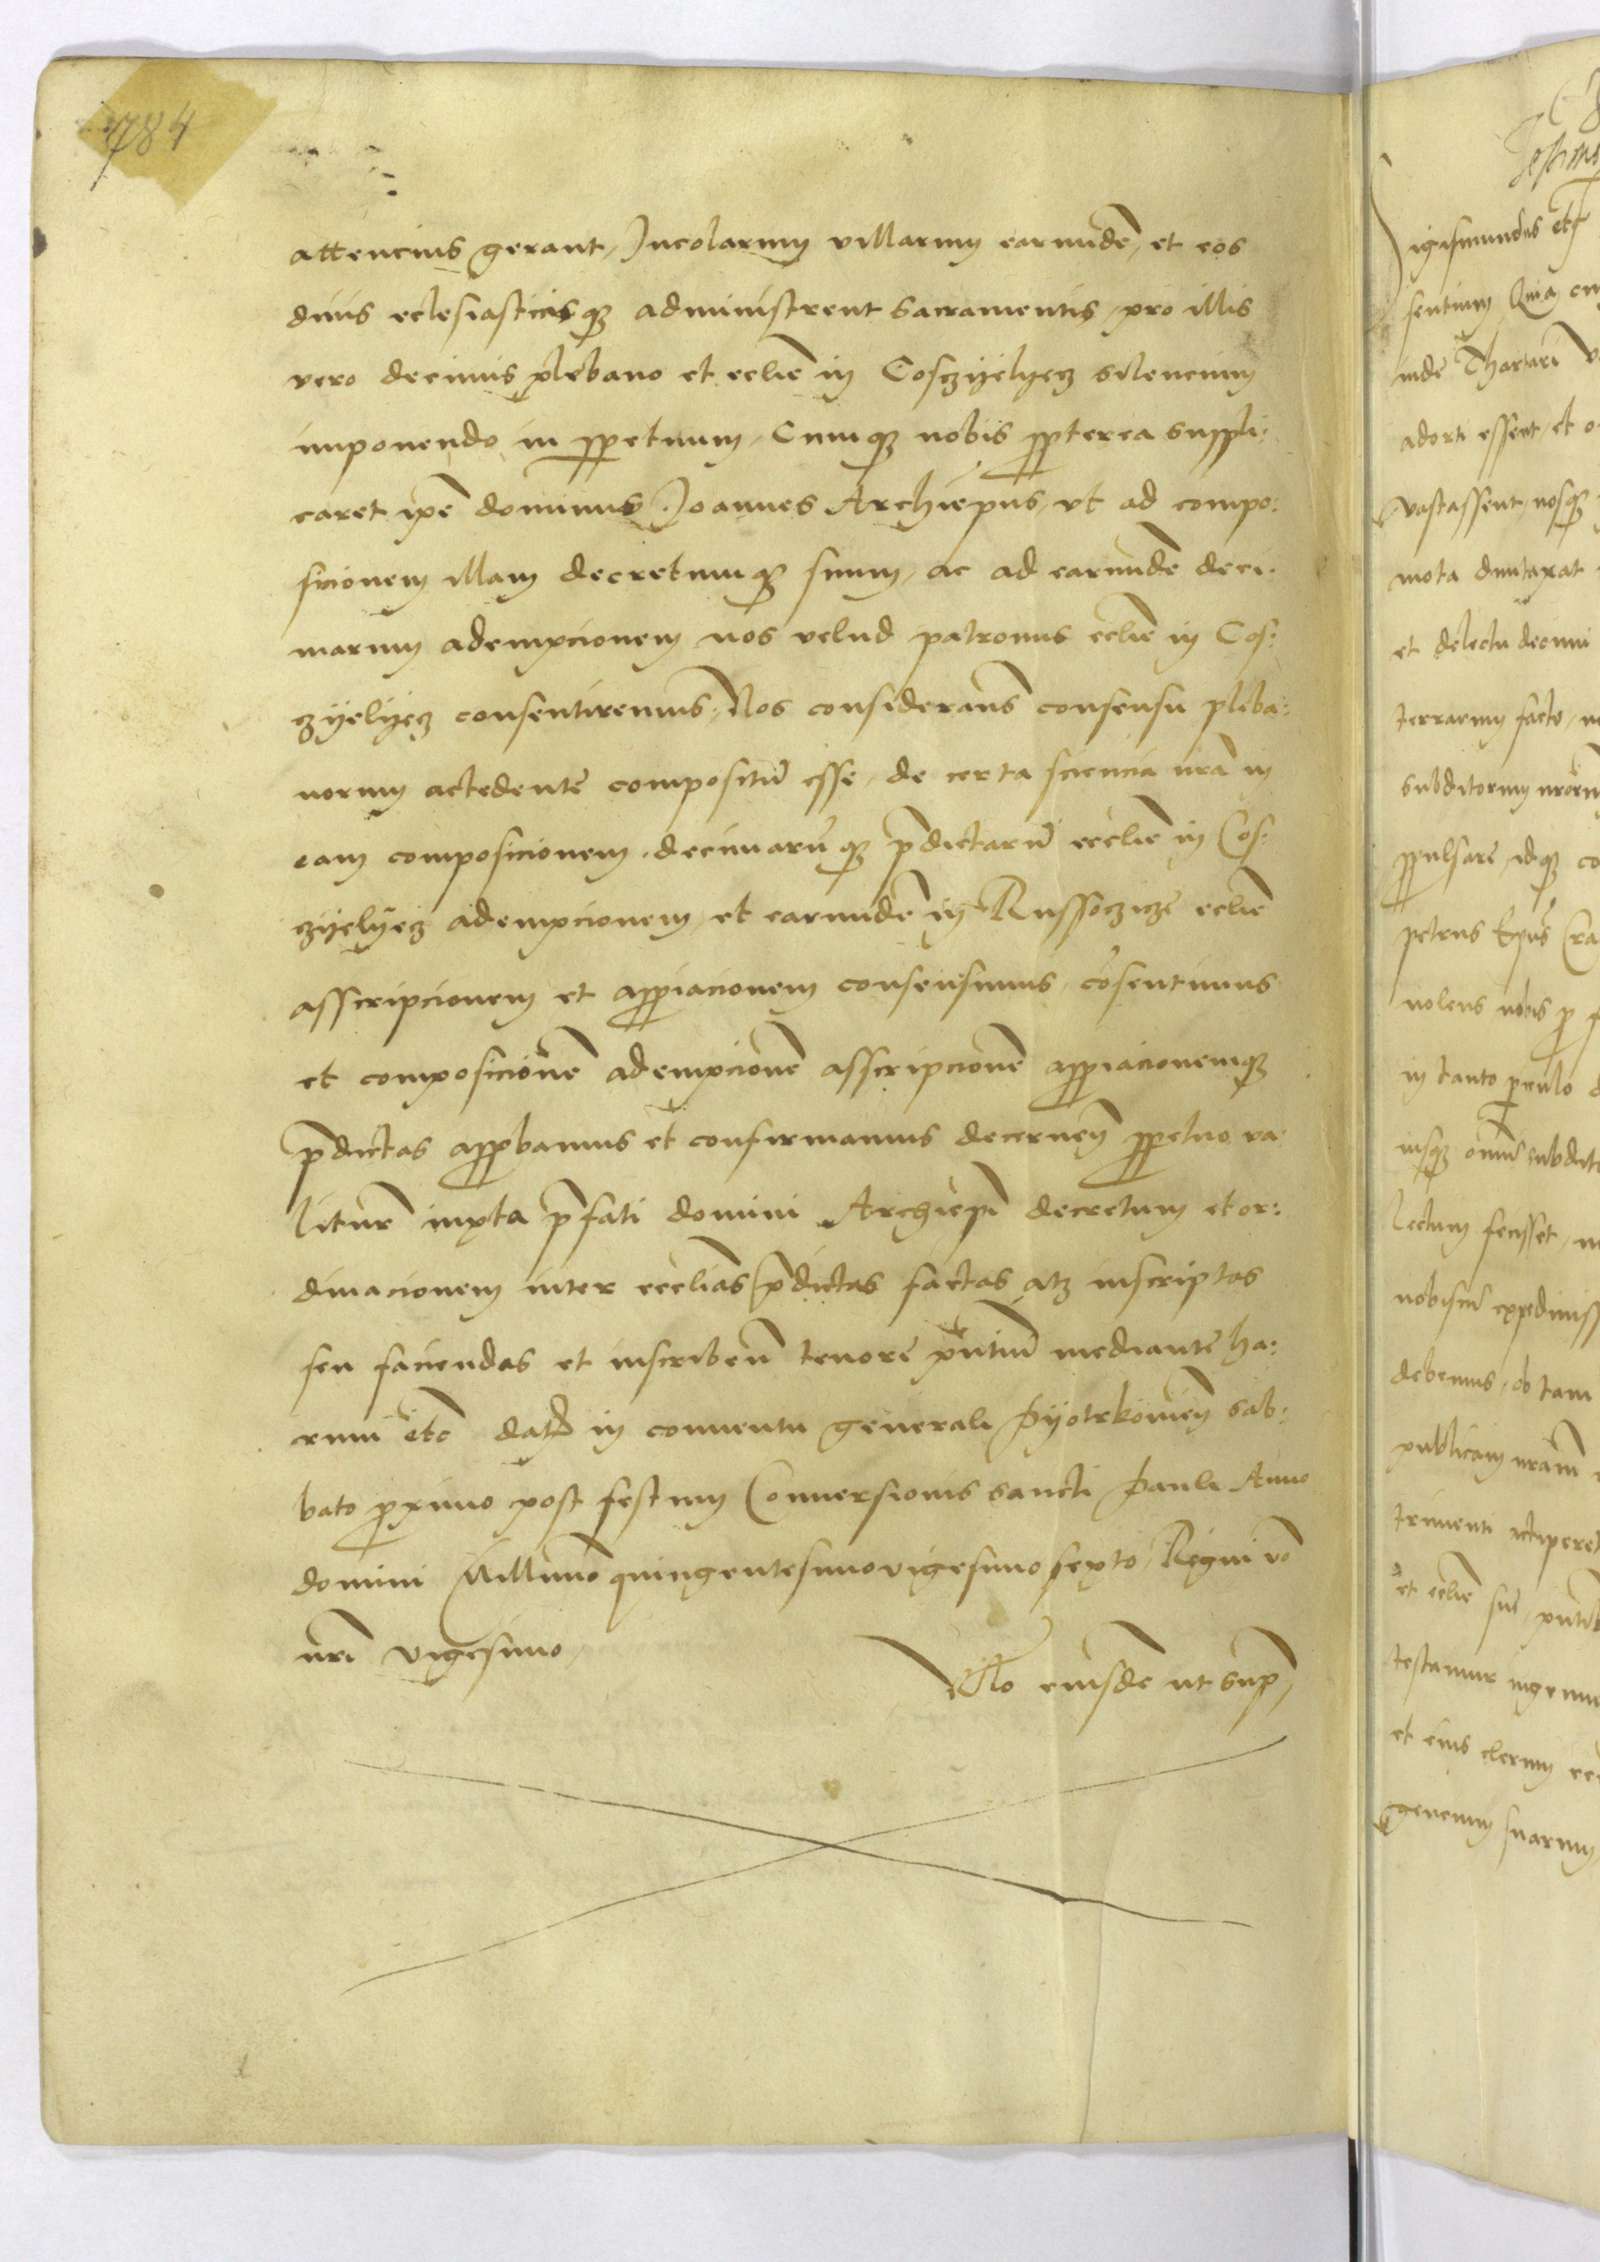 784
attencius gerant, Incolarum villarum earundẽ, et eos
diuis eclesiasticisqꝫ administrent sacramentis, pro illis
vero decimis plebano et ecclie in Cosczyelyecz silencium
imponendo in ꝑpetuum, Cumqꝫ nobis ꝓpterea suppli:
caret ipẽ dominus Joannes Archiepus, vt ad compo:
sicionem illam decretumqꝫ suum, ac ad earundẽ deci:
marum adempcionem nos velud patronus ecclie in Cos:
czyelyecz consentiremus, Nos considerans consensu pleba:
norum accedente compositũ esse, de certa sciencia nrã in
eam composicionem, decimarũqꝫ p̃dictarũ ecclie in Cos:
czyelyecz adempcionem, et earundẽ in Russoczicze ecclie
asscripcionem et appriacionem consensimus, cõsentimus
et composicionẽ adempcionẽ asscripcionẽ appriacionemqꝫ
p̃dictas approbamus et confirmamus decernen̄ ꝑpetuo va:
lituré iuxta p̃fati domini Archiepi decretum et or:
dinacionem inter ecclias p̃dictas factas atqꝫ inscriptas
seu faciendas et inscriben̄ tenore pn̄tiũ mediante ha:
rum etc̃ dat̃ in conuentu generali Pyotrkouien̄ sab:
bato ꝓximo post festum Conuersionis sancti Pauli Anno
domini Millimo quingentesimo vigesimo sexto, Regni vo
nri vigesimo,
Rlo eiusdẽ ut supᷓ
igismundus etc̃
sentium Quia cu
inde Thartari
adorti essent, et
vastassent, nosqꝫ
mota duntaxat
et delectu decimi
terrarum facto,
subditorum nrõrum
ꝓpulsare, idqꝫ co
petrus Epus Cra
nolens nobis ꝓ
in tanto periculo
iusqꝫ oim̃ subdit
lectum fecisset,
nobiscũ expediuiss
debemus, ob tam
publicam nrãm
trimenti acciperet
et ecclie sue, pn̄tib
testamur ingenu
et eius clerum
generum suarum